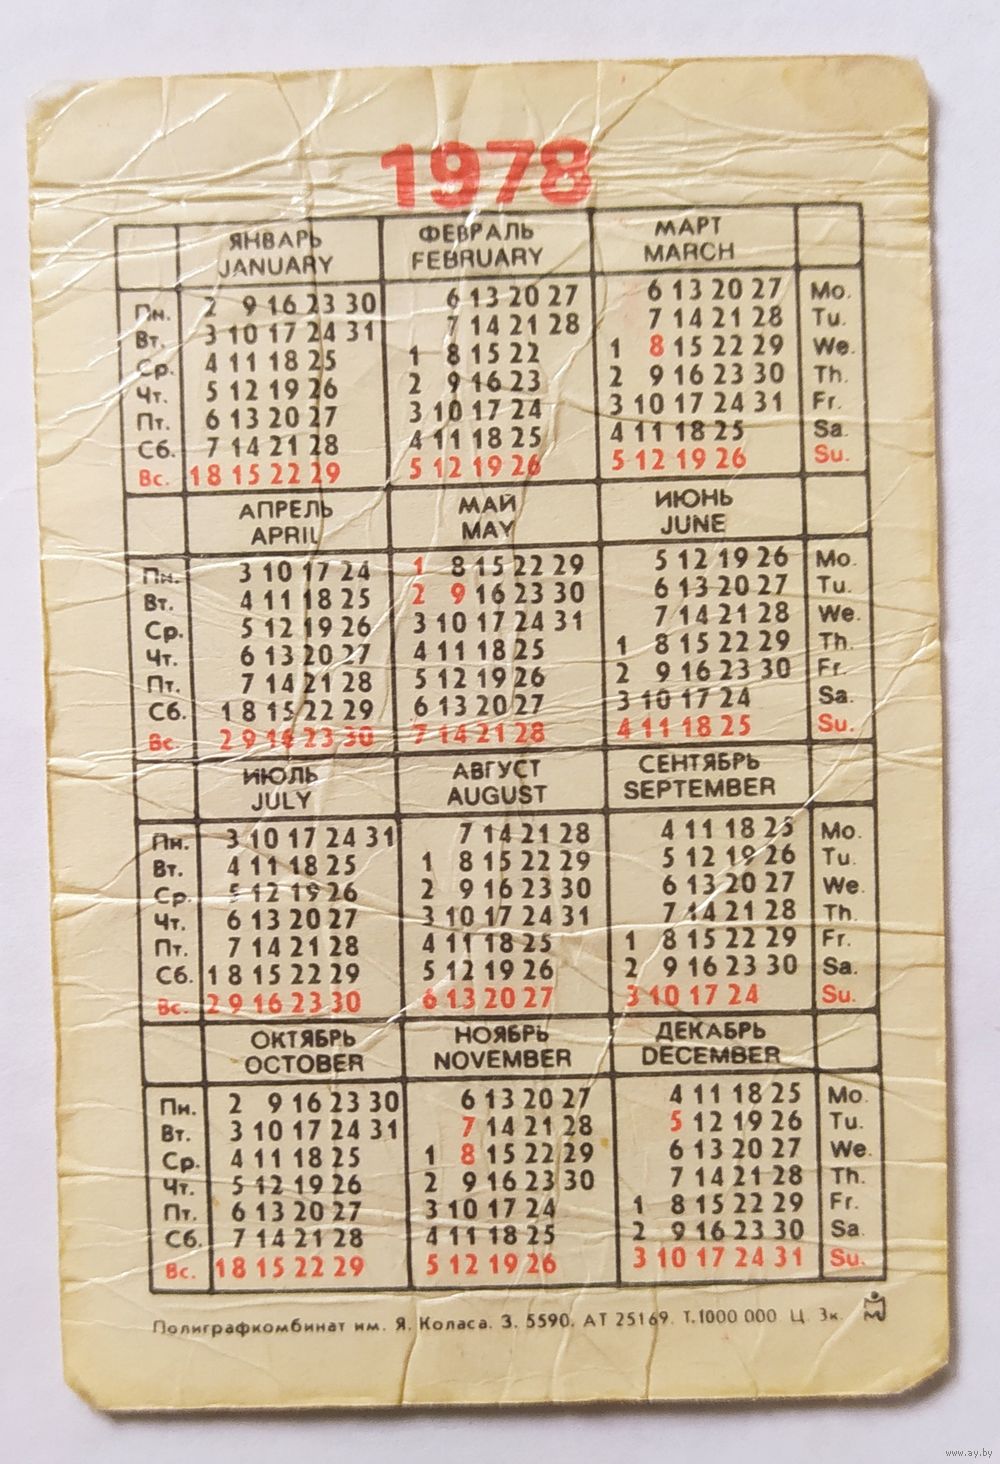 1978
ЯНВАРЬ ФЕВРАЛЬ МАРТ
JANUARY FEBRUARY MARCH
Пн. 2 9 16 23 30 6 13 20 27 6 13 20 27 Mo.
Вт. 3 10 17 24 31 7 14 21 28 7 14 21 28 Tu.
Ср. 4 11 18 25 1 8 15 22 1 8 15 22 29 We.
Чт. 5 12 19 26 2 9 16 23 2 9 16 23 30 Th.
Пт. 6 13 20 27 3 10 17 24 3 10 17 24 31 Fr.
Сб. 7 14 21 28 4 11 18 25 4 11 18 25 Sa.
Вс. 1 8 15 22 29 5 12 19 26 5 12 19 26 Su.
АПРЕЛЬ МАЙ ИЮНЬ
APRIL MAY JUNE
Пн. 3 10 17 24 1 8 15 22 29 5 12 19 26 Mo.
Вт. 4 11 18 25 2 9 16 23 30 6 13 20 27 Tu.
Ср. 5 12 19 26 3 10 17 24 31 7 14 21 28 We.
Чт. 6 13 20 27 4 11 18 25 1 8 15 22 29 Th.
Пт. 7 14 21 28 5 12 19 26 2 9 16 23 30 Fr.
Сб. 1 8 15 22 29 6 13 20 27 3 10 17 24 Sa.
Вс. 2 9 16 23 30 7 14 21 28 4 11 18 25 Su.
ИЮЛЬ АВГУСТ СЕНТЯБРЬ
JULY AUGUST SEPTEMBER
Пн. 3 10 17 24 31 7 14 21 28 4 11 18 25 Mo.
Вт. 4 11 18 25 1 8 15 22 29 5 12 19 26 Tu.
Ср. 5 12 19 26 2 9 16 23 30 6 13 20 27 We.
Чт. 6 13 20 27 3 10 17 24 31 7 14 21 28 Th.
Пт. 7 14 21 28 4 11 18 25 1 8 15 22 29 Fr.
Сб. 1 8 15 22 29 5 12 19 26 2 9 16 23 30 Sa.
Вс. 2 9 16 23 30 6 13 20 27 3 10 17 24 Su.
ОКТЯБРЬ НОЯБРЬ ДЕКАБРЬ
OCTOBER NOVEMBER DECEMBER
Пн. 2 9 16 23 30 6 13 20 27 4 11 18 25 Mo.
Вт. 3 10 17 24 31 7 14 21 28 5 12 19 26 Tu.
Ср. 4 11 18 25 1 8 15 22 29 6 13 20 27 We.
Чт. 5 12 19 26 2 9 16 23 30 7 14 21 28 Th.
Пт. 6 13 20 27 3 10 17 24 1 8 15 22 29 Fr.
Сб. 7 14 21 28 4 11 18 25 2 9 16 23 30 Sa.
Вс. 1 8 15 22 29 5 12 19 26 3 10 17 24 31 Su.
Полиграфкомбинат им. Я. Коласа. З. 5590. АТ 25169. Т. 1000 000 Ц. 3к.
www.ay.by